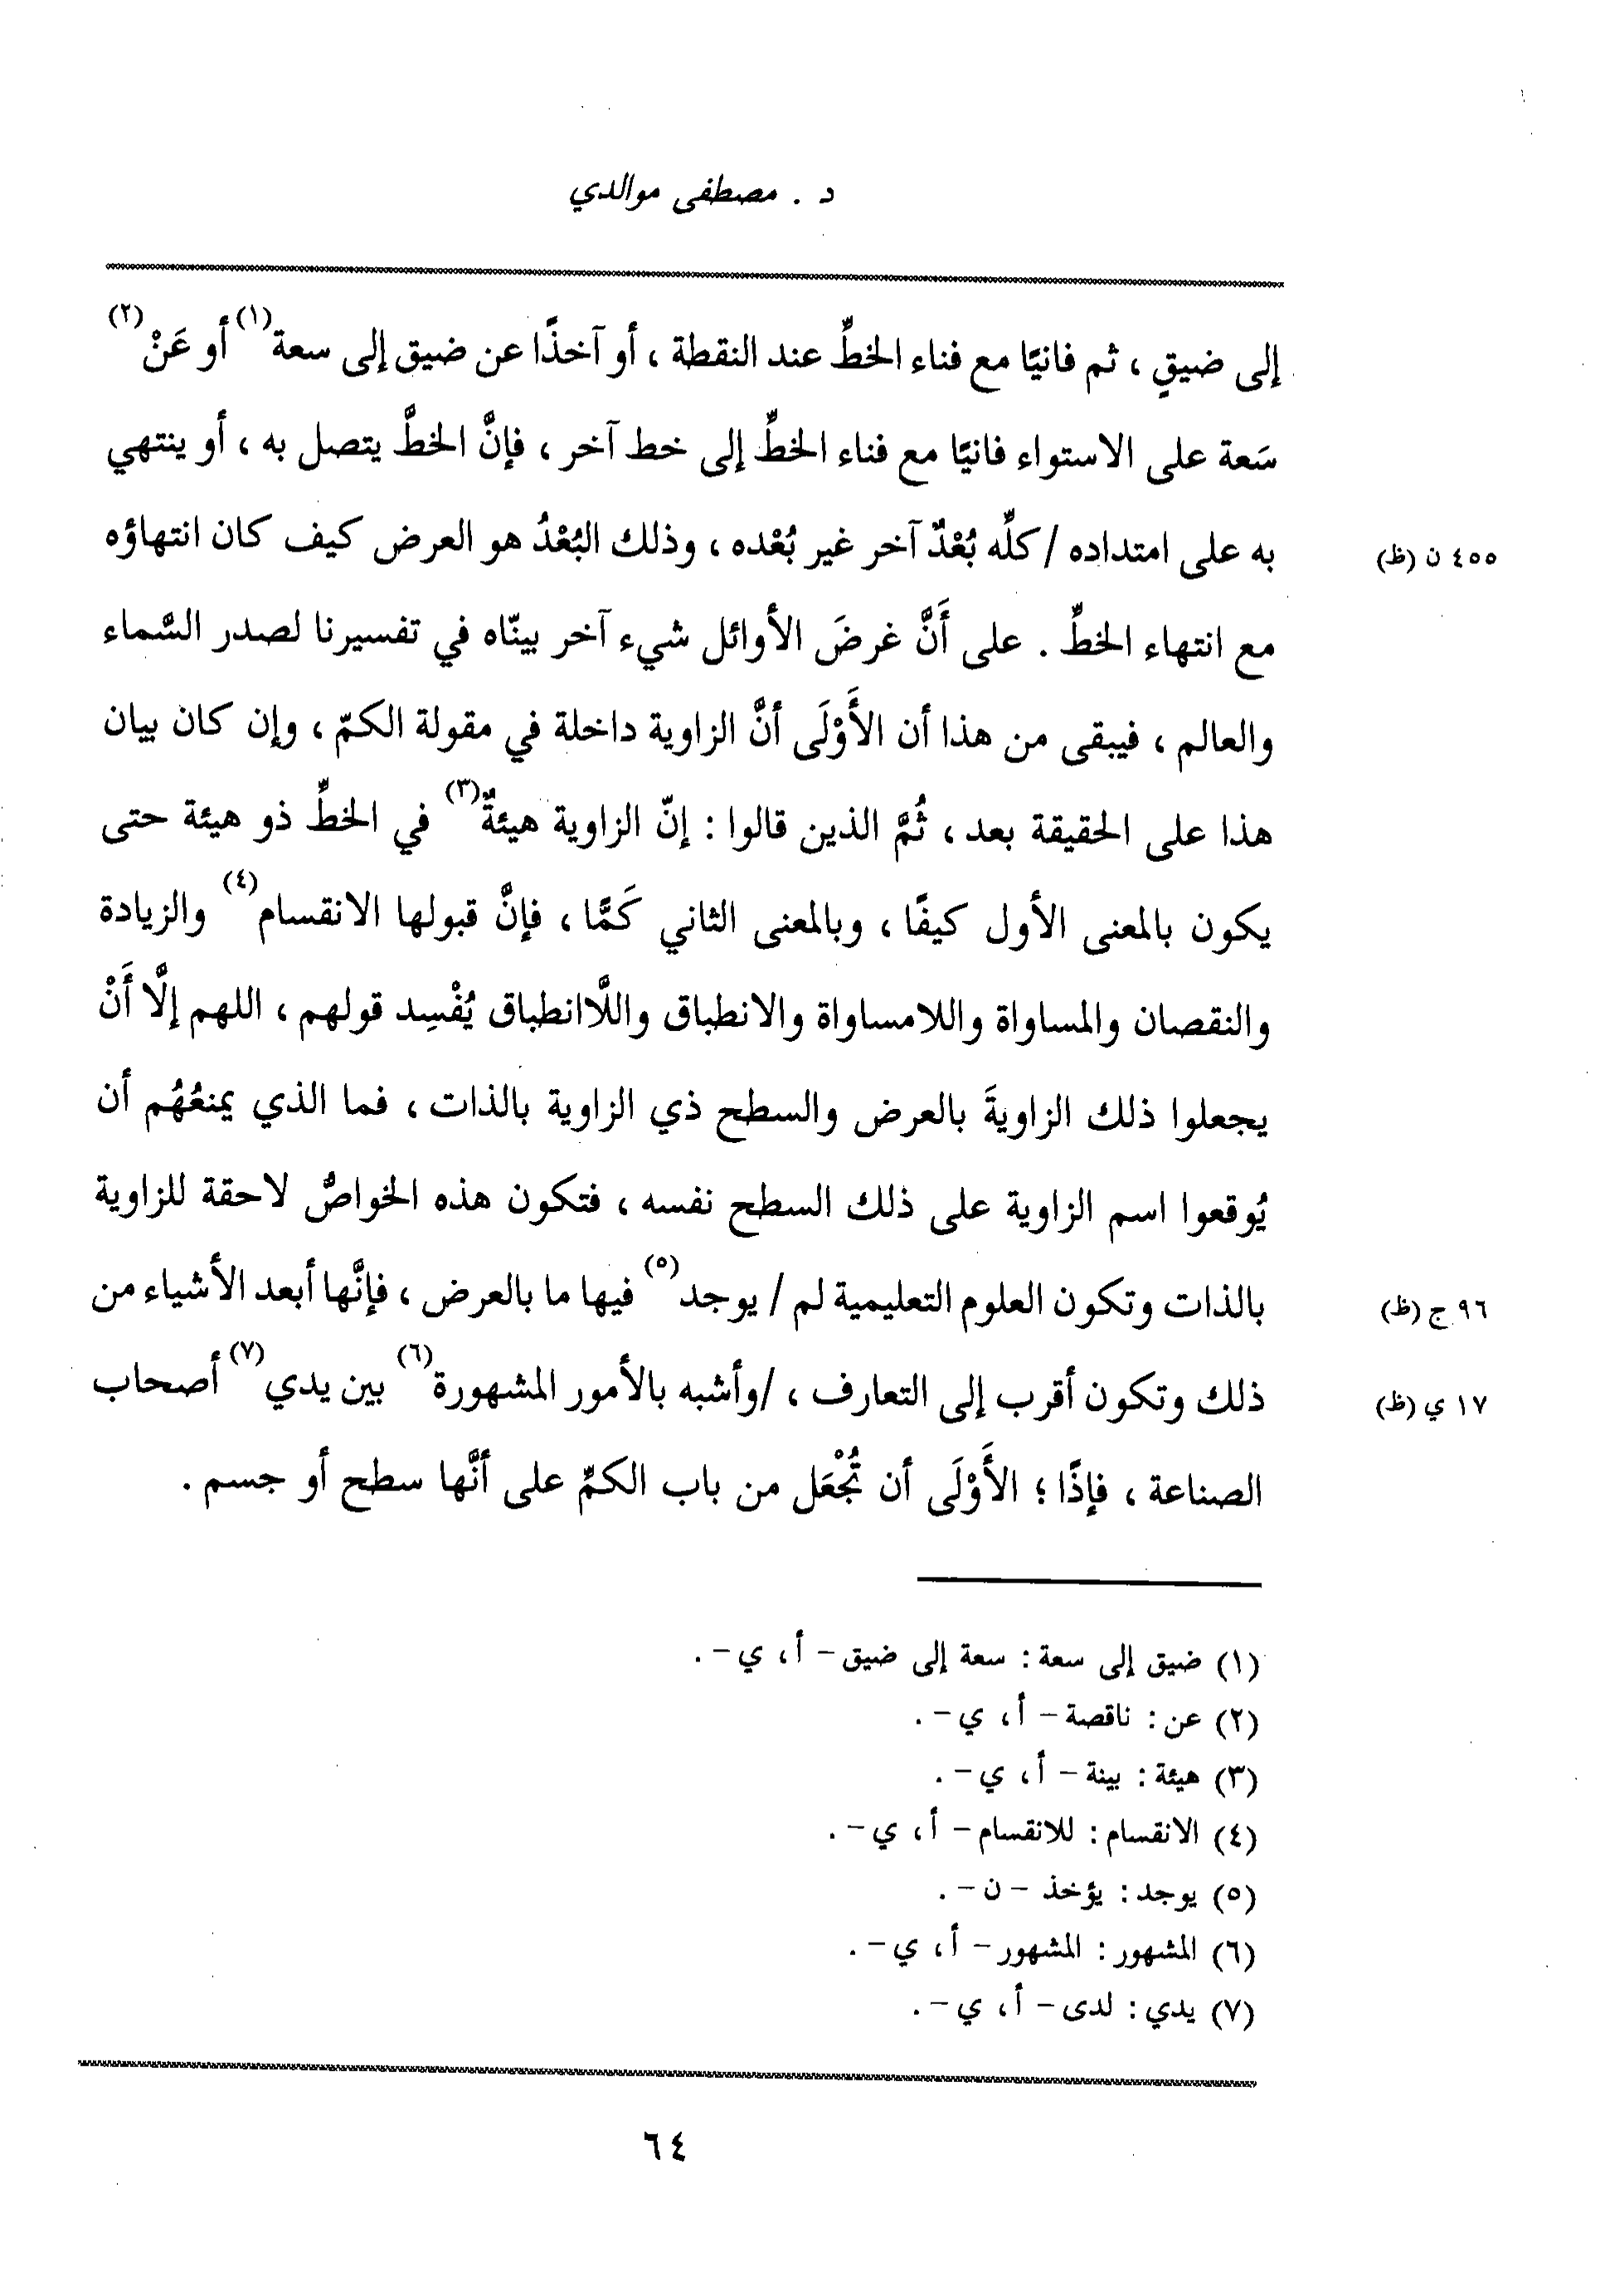 د . مصطفى موالدي
إلى ضيقٍ ، ثم فانيًا مع فناء الخطِّ عند النقطة ، أو آخذًا عن ضيق إلى سعة(١) أو عَنْ(٢)
سَعة على الاستواء فانيًا مع فناء الخطِّ إلى خط آخر ، فإنَّ الخطَّ يتصل به ، أو ينتهي
به على امتداده / كلِّه بُعْدٌ آخر غير بُعْده ، وذلك البُعْدُ هو العرض كيف كان انتهاؤه
٤٥٥ ن (ظ)
مع انتهاء الخطِّ . على أَنَّ غرضَ الأوائل شيء آخر بينّاه في تفسيرنا لصدر السَّماء
والعالم ، فيبقى من هذا أن الأَوْلَى أنَّ الزاوية داخلة في مقولة الكمّ ، وإن كان بيان
هذا على الحقيقة بعد ، ثُمَّ الذين قالوا : إنّ الزاوية هيئةٌ(٣) في الخطِّ ذو هيئة حتى
يكون بالمعنى الأول كيفًا ، وبالمعنى الثاني كَمًّا ، فإنَّ قبولها الانقسام(٤) والزيادة
والنقصان والمساواة واللامساواة والانطباق واللَّاانطباق يُفْسِد قولهم ، اللهم إلَّا أَنْ
يجعلوا ذلك الزاويةَ بالعرض والسطح ذي الزاوية بالذات ، فما الذي يمنعُهُم أن
يُوقعوا اسم الزاوية على ذلك السطح نفسه ، فتكون هذه الخواصُّ لاحقة للزاوية
بالذات وتكون العلوم التعليمية لم / يوجد(٥) فيها ما بالعرض ، فإنَّها أبعد الأشياء من
٩٦ ج (ظ)
ذلك وتكون أقرب إلى التعارف ، /وأشبه بالأمور المشهورة(٦) بين يدي(٧) أصحاب
١٧ ي (ظ)
الصناعة ، فإذًا ؛ الأَوْلَى أن تُجْعَل من باب الكمِّ على أنَّها سطح أو جسم .
(١) ضيق إلى سعة : سعة إلى ضيق – أ ، ي – .
(٢) عن : ناقصة – أ ، ي – .
(٣) هيئة : بينة – أ ، ي – .
(٤) الانقسام : للانقسام – أ ، ي – .
(٥) يوجد : يؤخذ – ن – .
(٦) المشهور : المشهور – أ ، ي – .
(٧) يدي : لدى – أ ، ي – .
٦٤